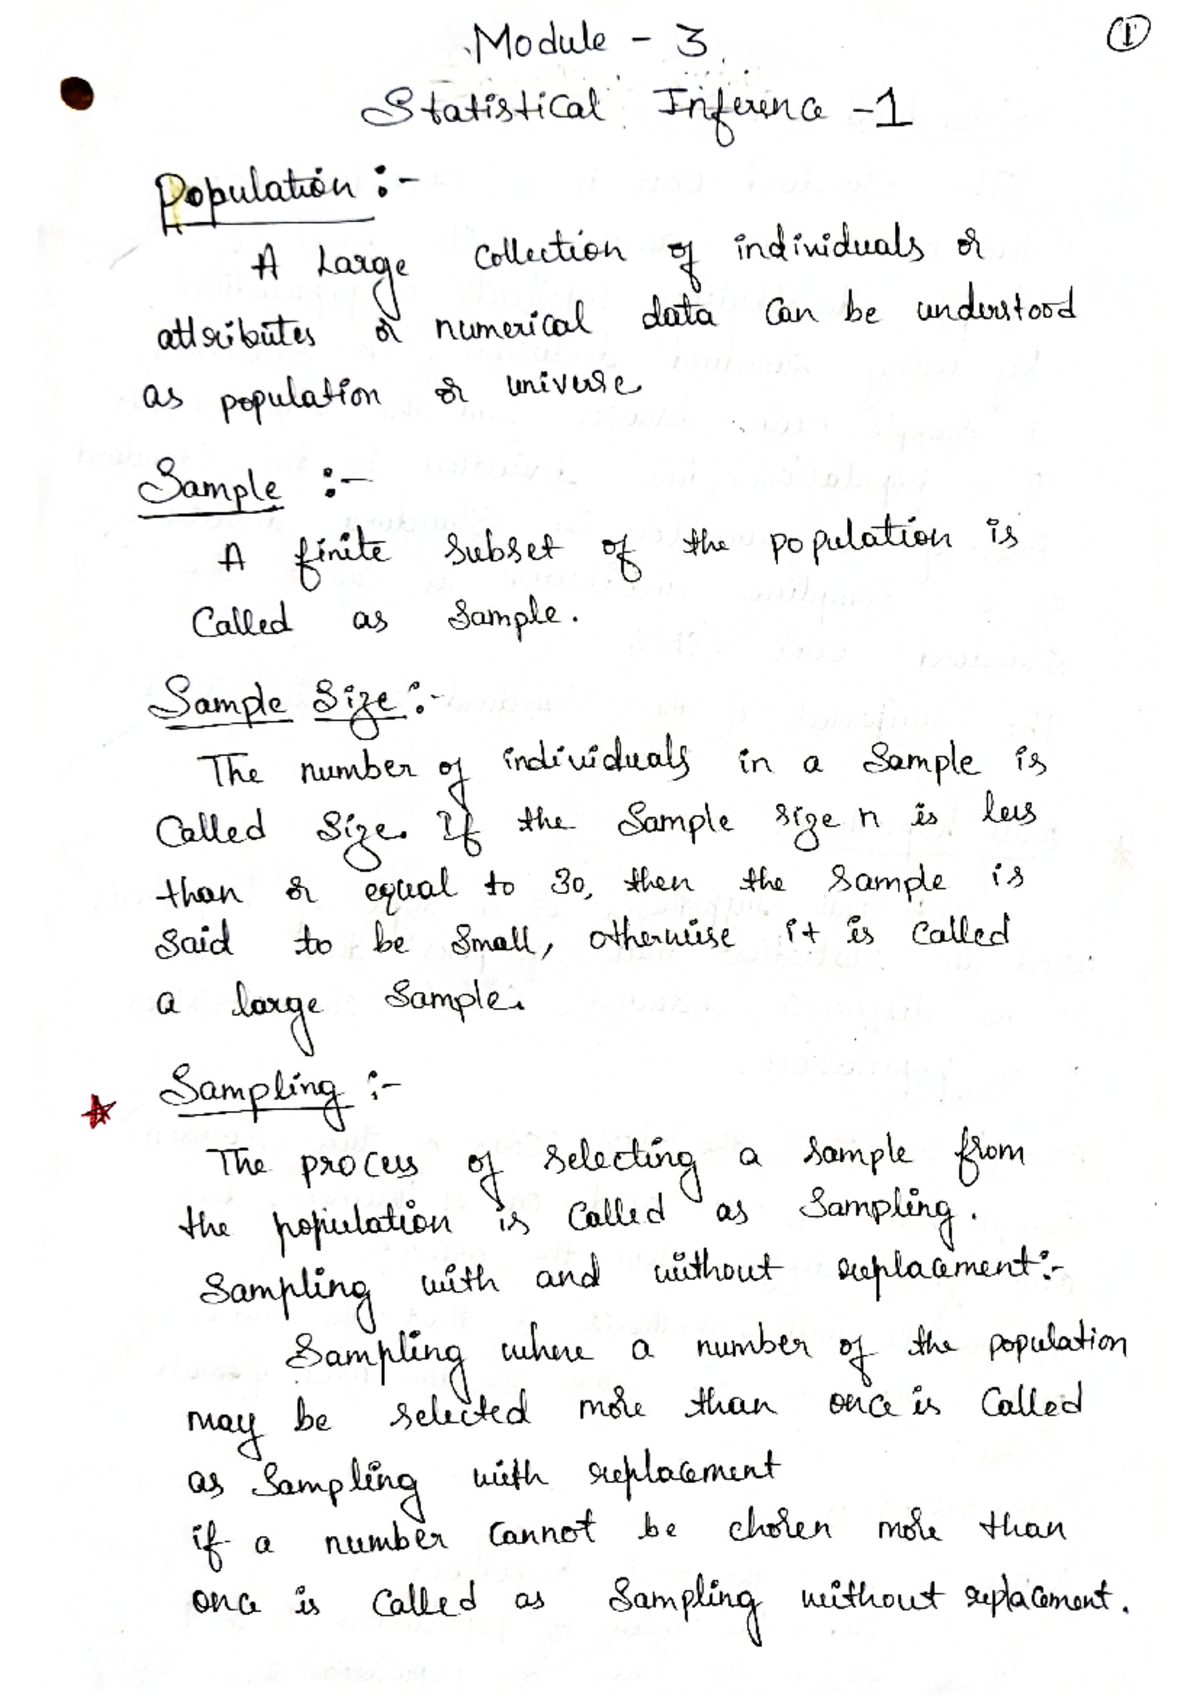 Module - 3
1
Statistical Inference -1
Population :-
A Large collection of individuals or
attributes or numerical data can be understood
as population or universe
Sample :-
A finite subset of the population is
Called as Sample.
Sample Size :-
The number of individuals in a Sample is
Called Size. If the Sample size n is less
than or equal to 30, then the sample is
Said to be Small, otherwise it is called
a large Sample.
Sampling :-
The process of selecting a sample from
the population is called as Sampling.
Sampling with and without replacement :-
Sampling where a number of the population
may be selected more than once is called
as Sampling with replacement
if a number cannot be chosen more than
once is called as Sampling without replacement.